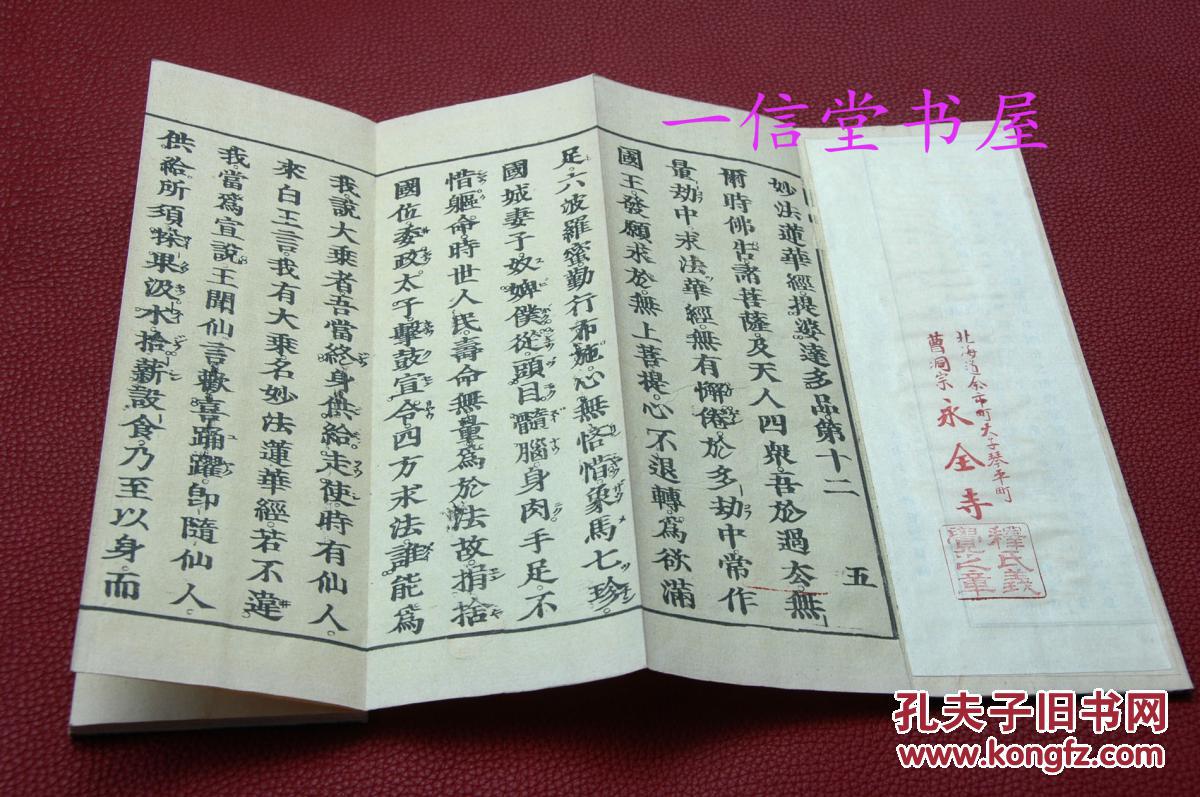 一信堂书屋
北海道余市町大字琴平町
曹洞宗 永全寺
釋氏義
覺之章
妙法蓮華經提婆達多品第十二 五
爾時佛告諸菩薩及天人四衆吾於過去無
量劫中求法華經無有懈倦於多劫中常作
國王發願求於無上菩提心不退轉爲欲滿
足六波羅蜜勤行布施心無悋惜象馬七珍
國城妻子奴婢僕從頭目髓腦身肉手足不
惜軀命時世人民壽命無量爲於法故捐捨
國位委政太子擊鼓宣令四方求法誰能爲
我說大乘者吾當終身供給走使時有仙人
來白王言我有大乘名妙法蓮華經若不違
我當爲宣說王聞仙言歡喜踊躍卽隨仙人
供給所須採果汲水拾薪設食乃至以身而
孔夫子旧书网
www.kongfz.com